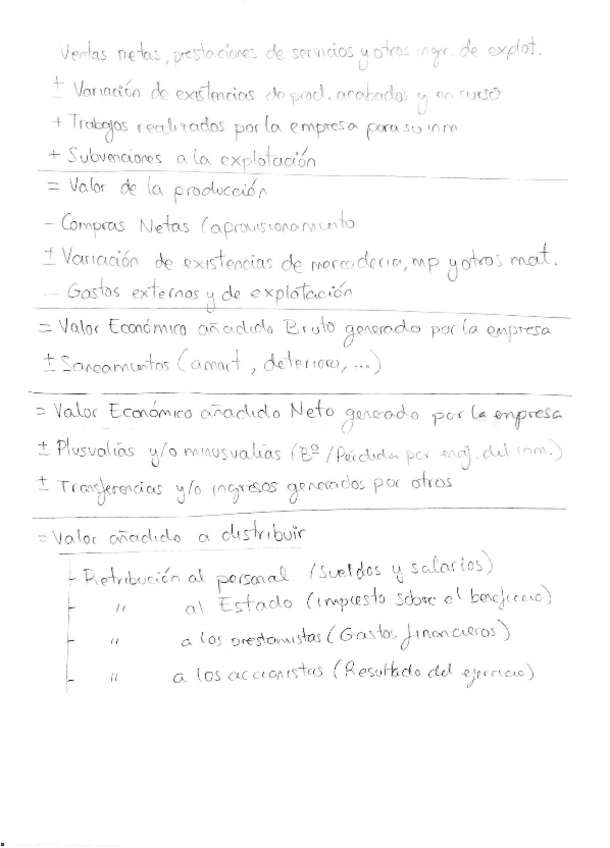 Ventas netas, prestaciones de servicios y otros ingr. de explot.
± Variación de existencias de prod. acabados y en curso
+ Trabajos realizados por la empresa para su inm
+ Subvenciones a la explotación
= Valor de la producción
- Compras Netas (aprovisionamiento
± Variación de existencias de mercadería, mp y otros mat.
- Gastos externos y de explotación
= Valor Económico añadido Bruto generado por la empresa
± Saneamientos (amort, deterioro, ...)
= Valor Económico añadido Neto generado por la empresa
± Plusvalías y/o minusvalías (Bº/Pérdida por enaj. del inm.)
± Transferencias y/o ingresos generados por otros
= Valor añadido a distribuir
- Retribución al personal (sueldos y salarios)
- " al Estado (impuesto sobre el beneficio)
- " a los prestamistas (Gastos financieros)
- " a los accionistas (Resultado del ejercicio)